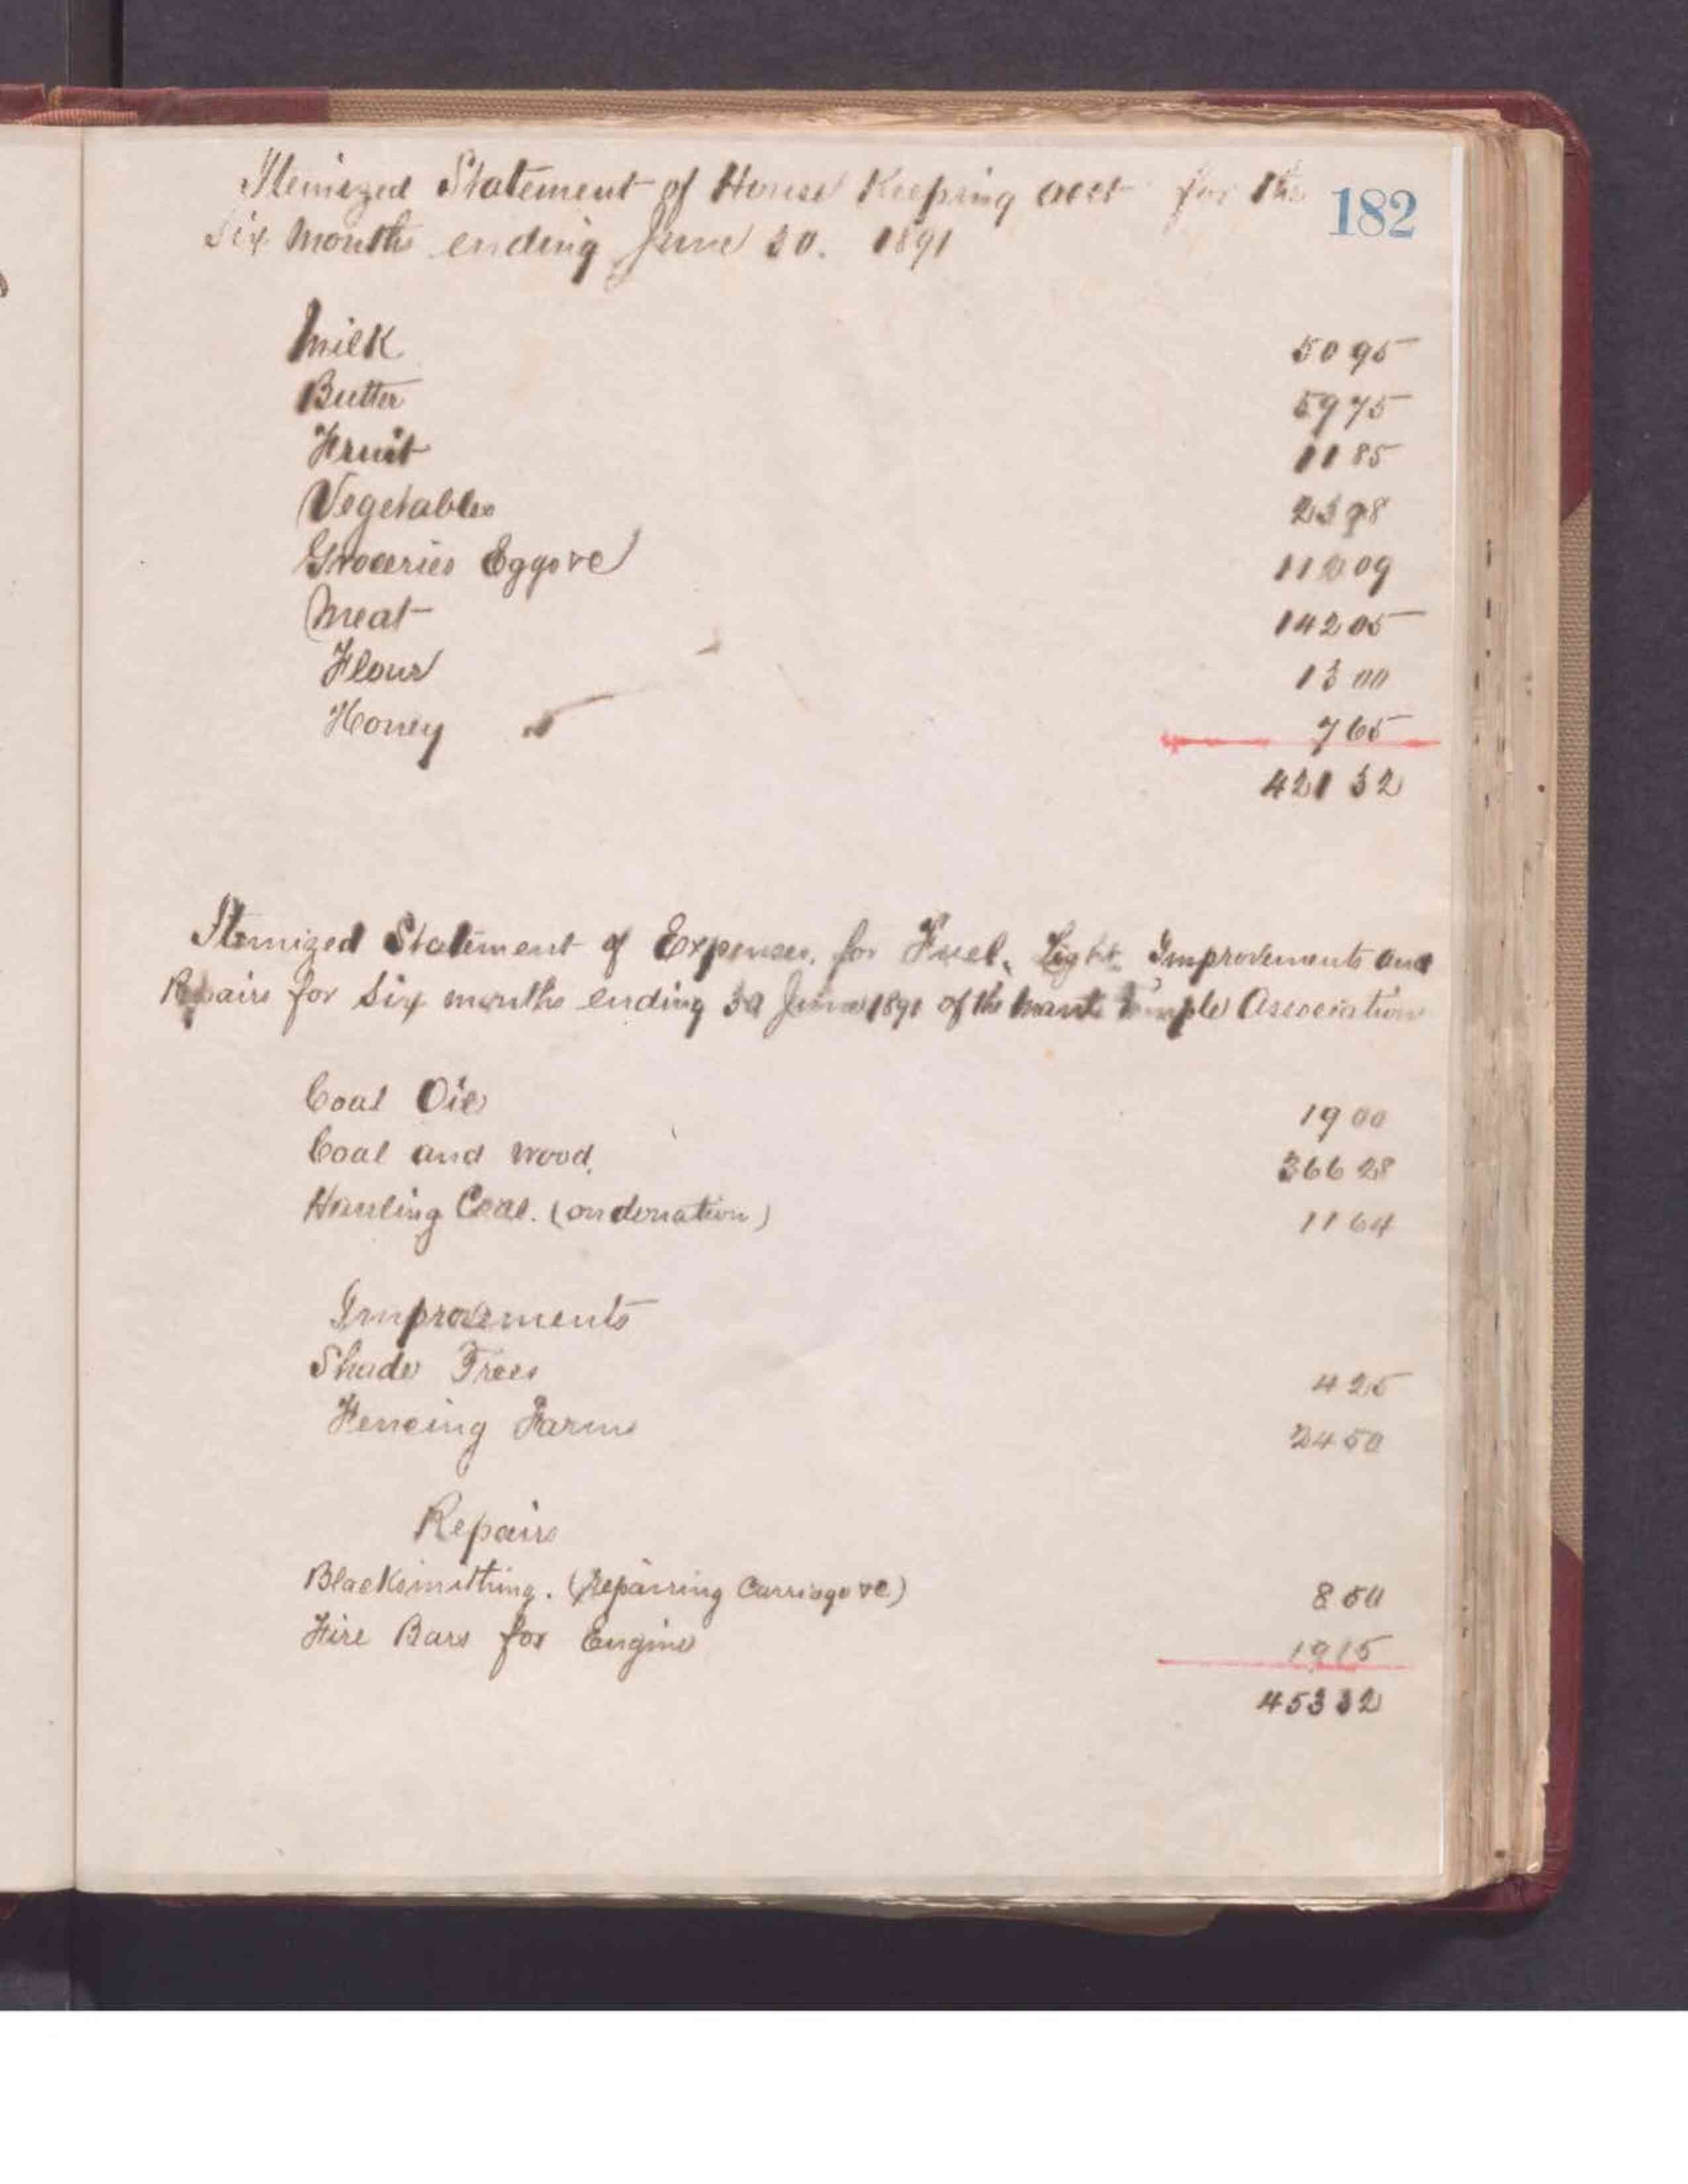 182
Itemized Statement of House Keeping acct for the
Six Months ending June 30. 1891
Milk 50 95
Butter 59 75
Fruit 11 85
Vegetables 23 98
Groceries Eggs &c 112 09
Meat 142 05
Flour 13 00
Honey 7 65
421 32
Itemized Statement of Expenses, for Fuel, Light, Improvements and
Repairs for Six months ending 30 June 1891 of the Manti Temple Association
Coal Oil 19 00
Coal and Wood. 366 28
Hauling Coal. (on donation) 11 64
Improvements
Shade Trees 4 25
Fencing Farm 24 50
Repairs
Blacksmithing. (Repairing Carriage &c) 8 50
Fire Bars for Engine 19 15
453 32